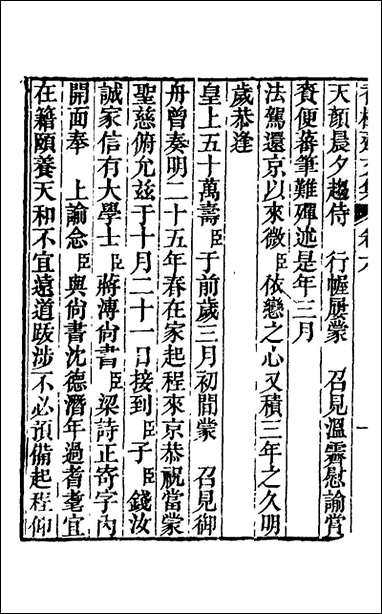 香樹齋文集 卷六 一
天顏晨夕趨侍 行幄屢蒙 召見溫霽慰諭賞
賚便蕃筆難殫述是年三月
法駕還京以來微臣依戀之心又積三年之久明
歲恭逢
皇上五十萬壽臣于前歲三月初間蒙 召見御
舟曾奏明二十五年春在家起程來京恭祝當蒙
聖慈俯允兹于十月二十一日接到臣子臣錢汝
誠家信有大學士臣蔣溥尚書臣梁詩正寄字內
開面奉 上諭念臣與尚書沈德潛年過耆耄宜
在籍頤養天和不宜遠道跋涉不必預備起程仰